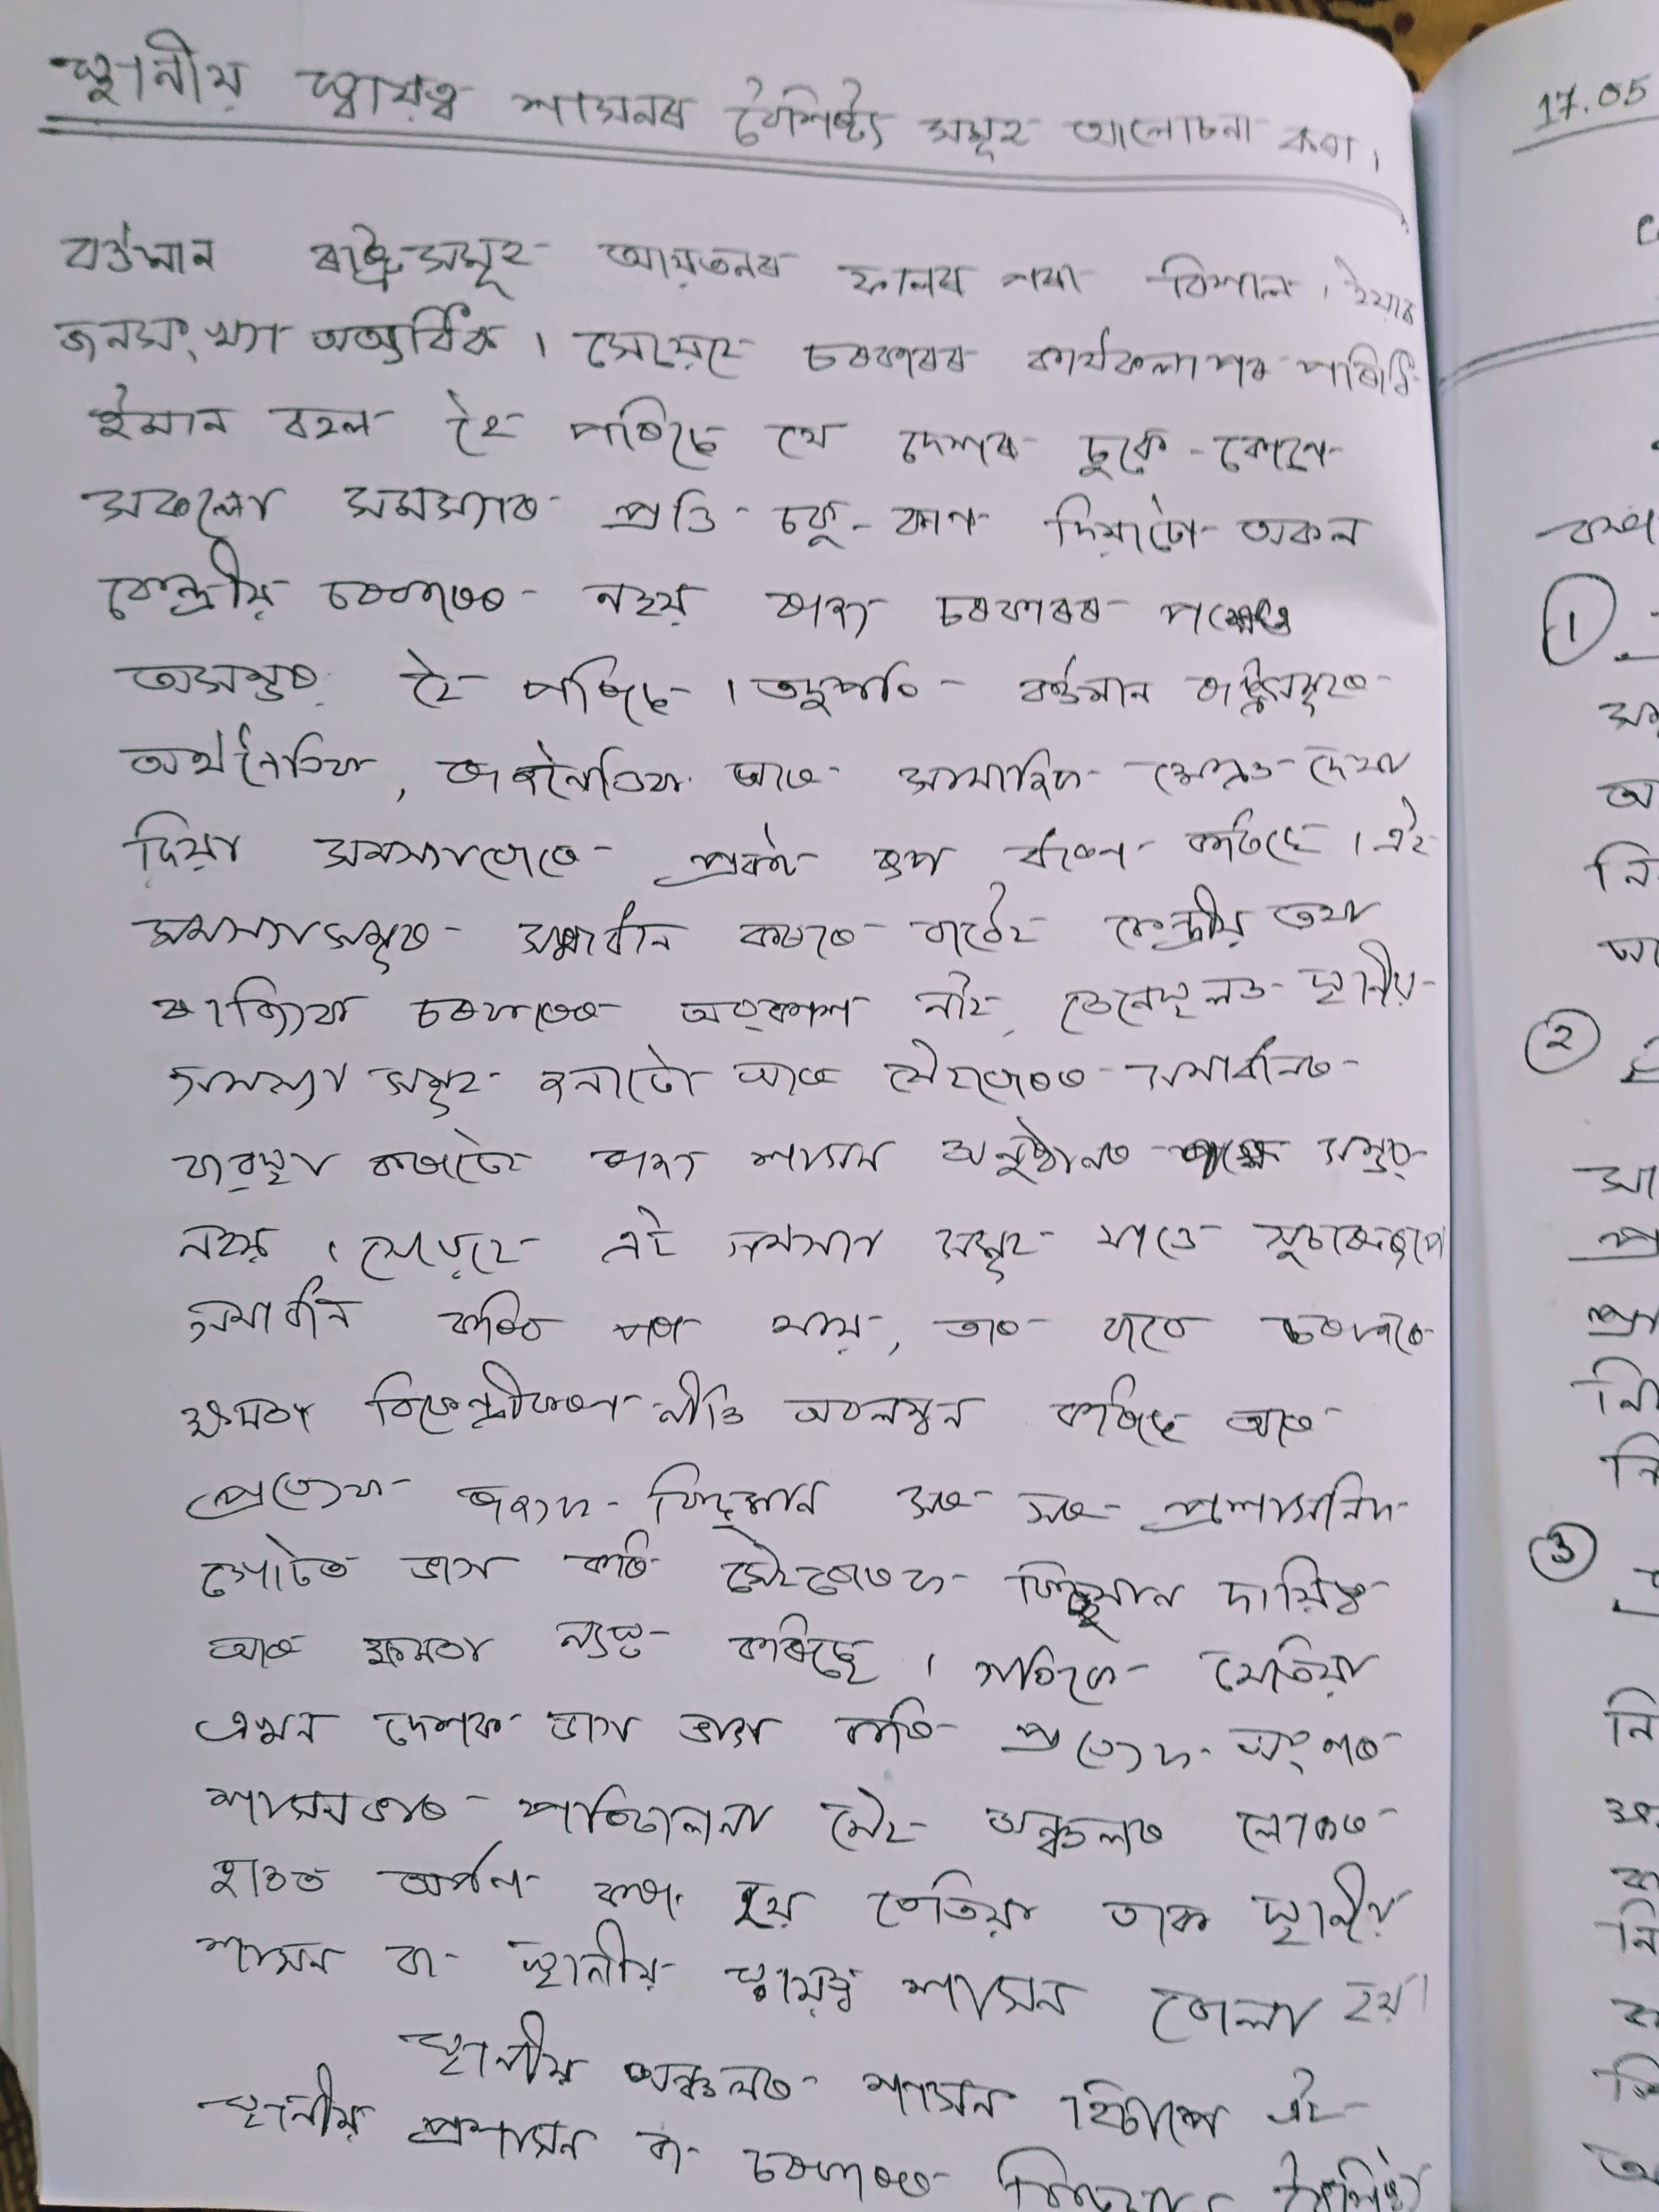 স্থানীয় স্বায়ত্ব শাসনৰ বৈশিষ্ট্য সমূহ আলোচনা কৰা।
বৰ্ত্তমান ৰাষ্ট্ৰসমূহ আয়তনৰ ফালৰ পৰা বিশাল। ইয়াৰ
জনসংখ্যা অত্যধিক। সেয়েহে চৰকাৰৰ কাৰ্যকলাপৰ পৰিধি
ইমান বহল হৈ পৰিছে যে দেশৰ চুকে-কোণে
সকলো সমস্যাৰ প্ৰতি চকু-কাণ দিয়াটো অকল
কেন্দ্ৰীয় চৰকাৰেই নহয় ৰাজ্য চৰকাৰৰ পক্ষেও
অসম্ভৱ হৈ পৰিছে। তদুপৰি বৰ্ত্তমান ৰাষ্ট্ৰসমূহত
অৰ্থনৈতিক, ৰাজনৈতিক আৰু সামাজিক ক্ষেত্ৰত দেখা
দিয়া সমস্যাবোৰে প্ৰকট ৰূপ ধাৰণ কৰিছে। এই
সমস্যাসমূহৰ সমাধান কৰাৰ বাবেই কেন্দ্ৰীয় তথা
ৰাজ্যিক চৰকাৰৰ অৱকাশ নাই, তেনেস্থলত স্থানীয়
সমস্যা সমূহ শুনাটো আৰু সেইবোৰৰ সমাধানৰ
ব্যৱস্থা কৰাটো ৰাজ্য শাসন অনুষ্ঠানৰ পক্ষে সম্ভৱ
নহয়। সেয়েহে এই সমস্যা সমূহ যাতে সুচাৰুৰূপে
সমাধান কৰিব পৰা যায়, তাৰ বাবে চৰকাৰে
ক্ষমতা বিকেন্দ্ৰীকৰণ নীতি অৱলম্বন কৰিছে আৰু
প্ৰত্যেক ৰাজ্যক কিছুমান সৰু সৰু প্ৰশাসনিক
গোটত ভাগ কৰি সেইবোৰক কিছুমান দায়িত্ব
আৰু ক্ষমতা ন্যস্ত কৰিছে। গতিকে যেতিয়া
এখন দেশক ভাগ ভাগ কৰি প্ৰত্যেক অংশৰ
শাসনভাৰ পৰিচালনা সেই অঞ্চলৰ লোকৰ
হাতত অৰ্পণ কৰা হয় তেতিয়া তাক স্থানীয়
শাসন বা স্থানীয় স্বায়ত্ব শাসন বোলা হয়।
স্থানীয় অঞ্চলৰ শাসন হিচাপে এই
স্থানীয় প্ৰশাসন বা চৰকাৰৰ বৈশিষ্ট্য
17.05
1
2
3